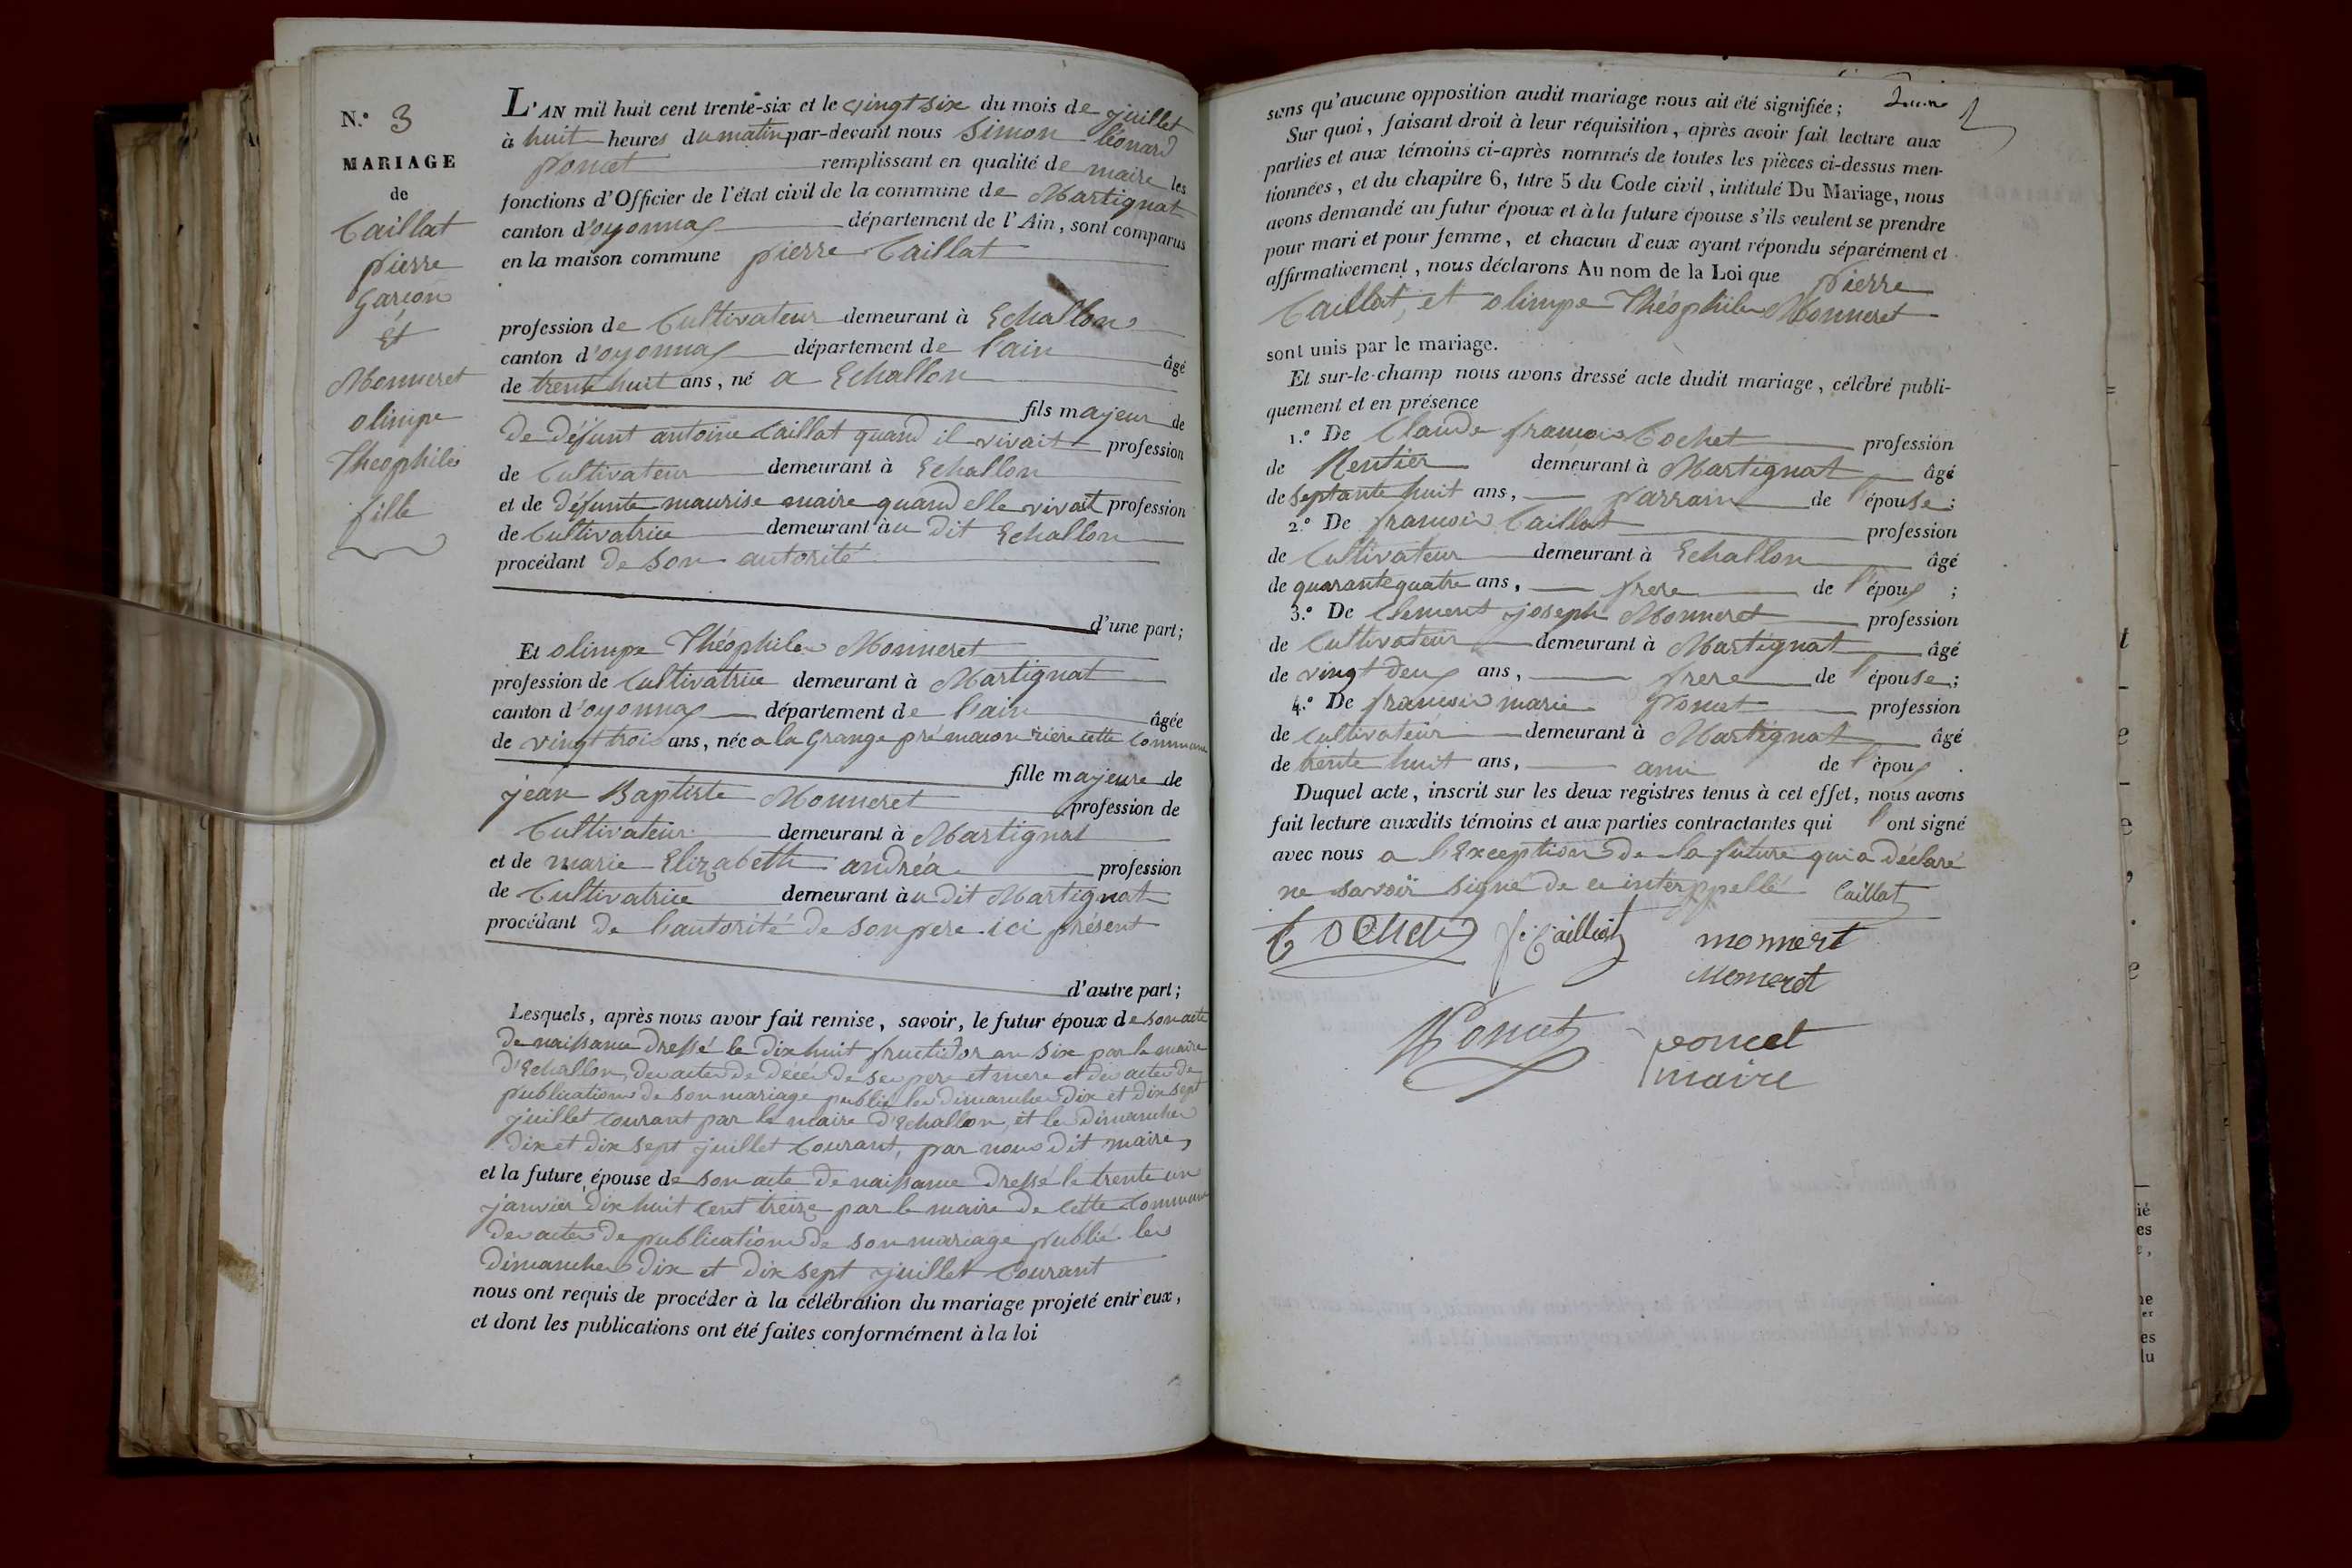 N.º 3
MARIAGE
de
Caillat
pierre
garcon
et
Monneret
olimpe
Théophile
fille
L'AN mil huit cent trente-six et le vingt six du mois de juillet
à huit heures du matin par-devant nous Simon léonard
poncet remplissant en qualité de maire les
fonctions d'Officier de l'état civil de la commune de Martignat
canton d'oyonnax département de l'Ain, sont comparus
en la maison commune pierre Caillat
profession de Cultivateur demeurant à Echallon
canton d'oyonnax département de l'ain âgé
de trente huit ans, né a Echallon
fils majeur de
De défunt antoine Caillat quand il vivait profession
de Cultivateur demeurant à Echallon
et de défunte maurise maire quand elle vivait profession
de Cultivatrice demeurant àu dit Echallon
procédant de son autorité
d'une part;
Et olimpe Théophile Monneret
profession de Cultivatrice demeurant à Martignat
canton d'oyonnax département de l'ain âgée
de vingt trois ans, née a la Grange pré macon rière cette Commune
fille majeure de
jean Baptiste Monneret profession de
Cultivateur demeurant à Martignat
et de marie Elizabeth andréa profession
de Cultivatrice demeurant àu dit Martignat
procédant de l'autorité de son pere ici présent
d'autre part;
Lesquels, après nous avoir fait remise, savoir, le futur époux de son acte
de naissance dressé le dix huit fructidor an six par le maire
d'Echallon, des actes de décès de ses pere et mere et des actes de
publications de son mariage publié les dimanches dix et dix sept
juillet courant par le maire d'Echallon, et les dimanches
dix et dix sept juillet courant, par nous dit maire,
et la future épouse de son acte de naissance dressé le trente un
janvier dix huit cent treize par le maire de cette Commune
des actes de publications de son mariage publié les
dimanches dix et dix sept juillet Courant
nous ont requis de procéder à la célébration du mariage projeté entr'eux,
et dont les publications ont été faites conformément à la loi
sans qu'aucune opposition audit mariage nous ait été signifiée;
Sur quoi, faisant droit à leur réquisition, après avoir fait lecture aux
parties et aux témoins ci-après nommés de toutes les pièces ci-dessus men-
tionnées, et du chapitre 6, titre 5 du Code civil, intitulé Du Mariage, nous
avons demandé au futur époux et à la future épouse s'ils veulent se prendre
pour mari et pour femme, et chacun d'eux ayant répondu séparément et
affirmativement, nous déclarons Au nom de la Loi que pierre
Caillat, et olimpe Théophile Monneret
sont unis par le mariage.
Et sur-le-champ nous avons dressé acte dudit mariage, célébré publi-
quement et en présence
1.º De Claude françois Cochet profession
de Rentier demeurant à Martignat âgé
de septante huit ans, parrain de l'épouse;
2.º De francois Caillat profession
de Cultivateur demeurant à Echallon âgé
de quarante quatre ans, frere de l'époux;
3.º De Clement joseph Monneret profession
de Cultivateur demeurant à Martignat âgé
de vingt deux ans, frere de l'épouse;
4.º De francois marie Poncet profession
de Cultivateur demeurant à Martignat âgé
de trente huit ans, ami de l'époux.
Duquel acte, inscrit sur les deux registres tenus à cet effet, nous avons
fait lecture auxdits témoins et aux parties contractantes qui l'ont signé
avec nous a l'Exception de la future qui a déclaré
ne savoir signé de ce interppellé Caillat
Cochet fs Cailliat monneret
Moneret
Poncet poncet
maire